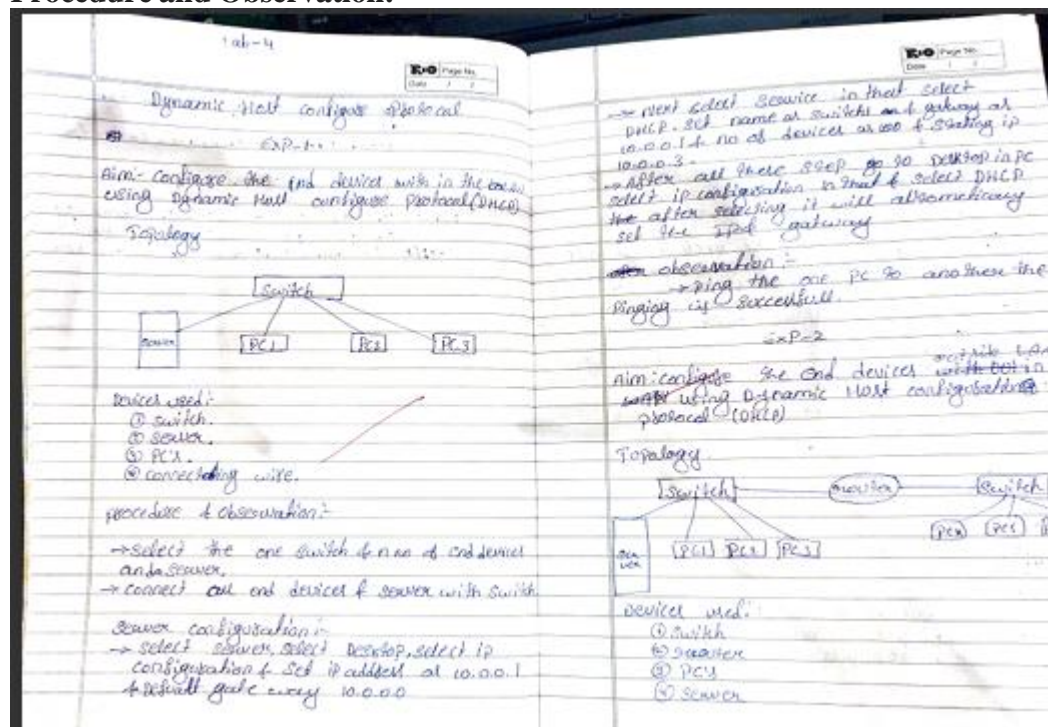 Procedure and Observation:
Lab-4
RIO Page No.
Date / /
Dynamic Host configure Protocal
EXP-1
Aim:- Configure the end devices with in the
using Dynamic Host configuse Protocal (DHCP)
Topology
Switch
Server
PC1
PC2
PC3
Devices used:-
① Switch.
② Server.
③ PC's.
④ connecting wire.
procedure & Observation:-
→ select the one switch & n no of end devices
and a server.
→ connect all end devices & server with switch.
Server configuration:-
→ select server, select Desktop, select ip
configuration & set ip address as 10.0.0.1
& Default gate way 10.0.0.0
RIO Page No.
Date / /
→ Next select Service in that select
DHCP. set name as switch1 and gateway as
10.0.0.1 & no of devices as & stating ip
10.0.0.3.
→ After all these step go to Desktop in PC
select ip configuration in that & select DHCP
the after selecting it will
set the gateway
observation:-
→ ping the one PC to anothere the
Pinging is successfull.
EXP-2
Aim: configure the end devices
using Dynamic Host configuration
protocol (DHCP)
Topology
Switch
router
Switch
server
PC1
PC2
PC3
PC4
PC5
Devices used:
① Switch
② router
③ PC's
④ Server